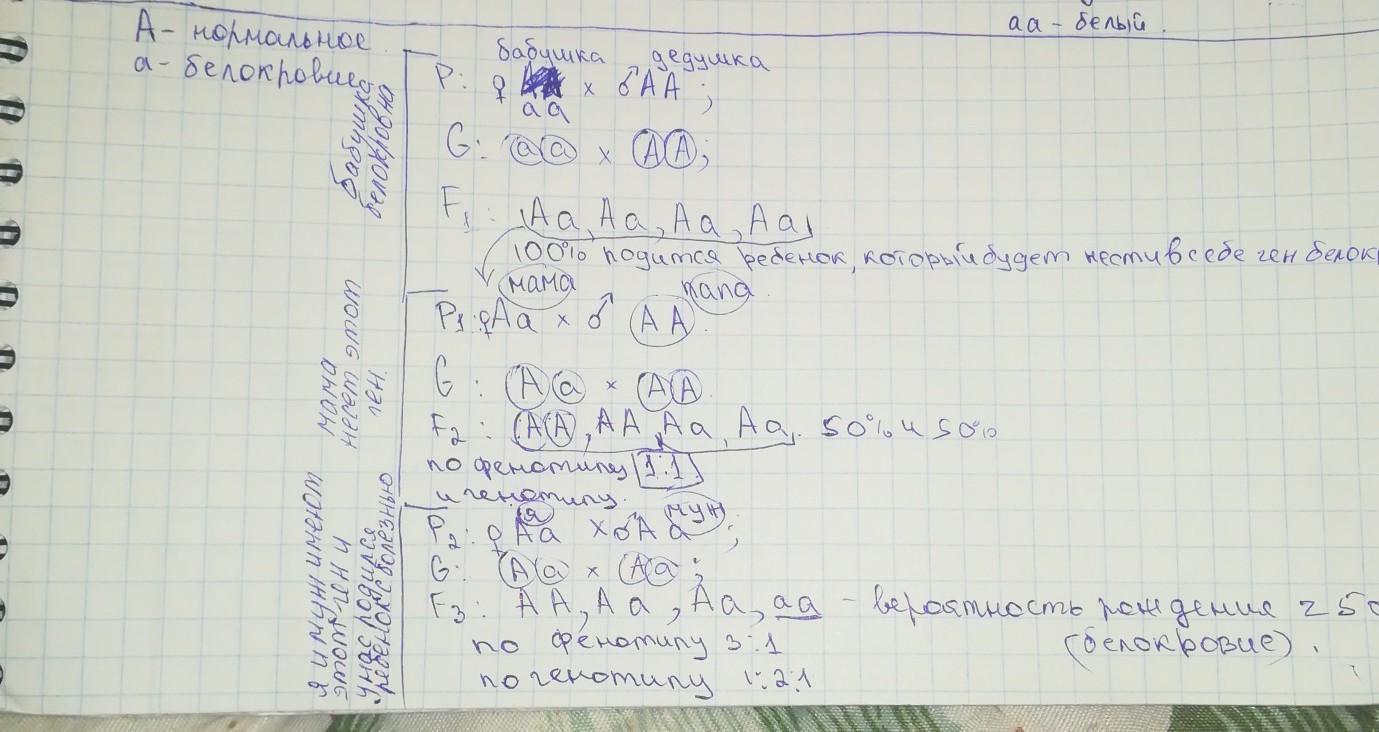 аа - белый.
А - нормальное
а - белокровие
бабушка дедушка
P: ♀ × ♂ АА;
аа
G: а а × А А;
F₁: Аа, Аа, Аа, Аа
100% родится ребенок, который будет нести в себе ген белок
мама папа
P₁: ♀Аа × ♂ АА.
G: А а × А А
F₂: АА, АА, Аа, Аа. 50% и 50%
по фенотипу 1:1.
и генотипу.
я муж
P₂: ♀ Аа × ♂Аа;
G: А а × А а;
F₃: АА, Аа, Аа, аа - вероятность рождение 25
(белокровие).
по фенотипу 3:1
по генотипу 1:2:1
бабушка
белокровна
мама
несет этом
ген.
я и муж имеют
этот ген и
у нас родился
ребенок с болезнью